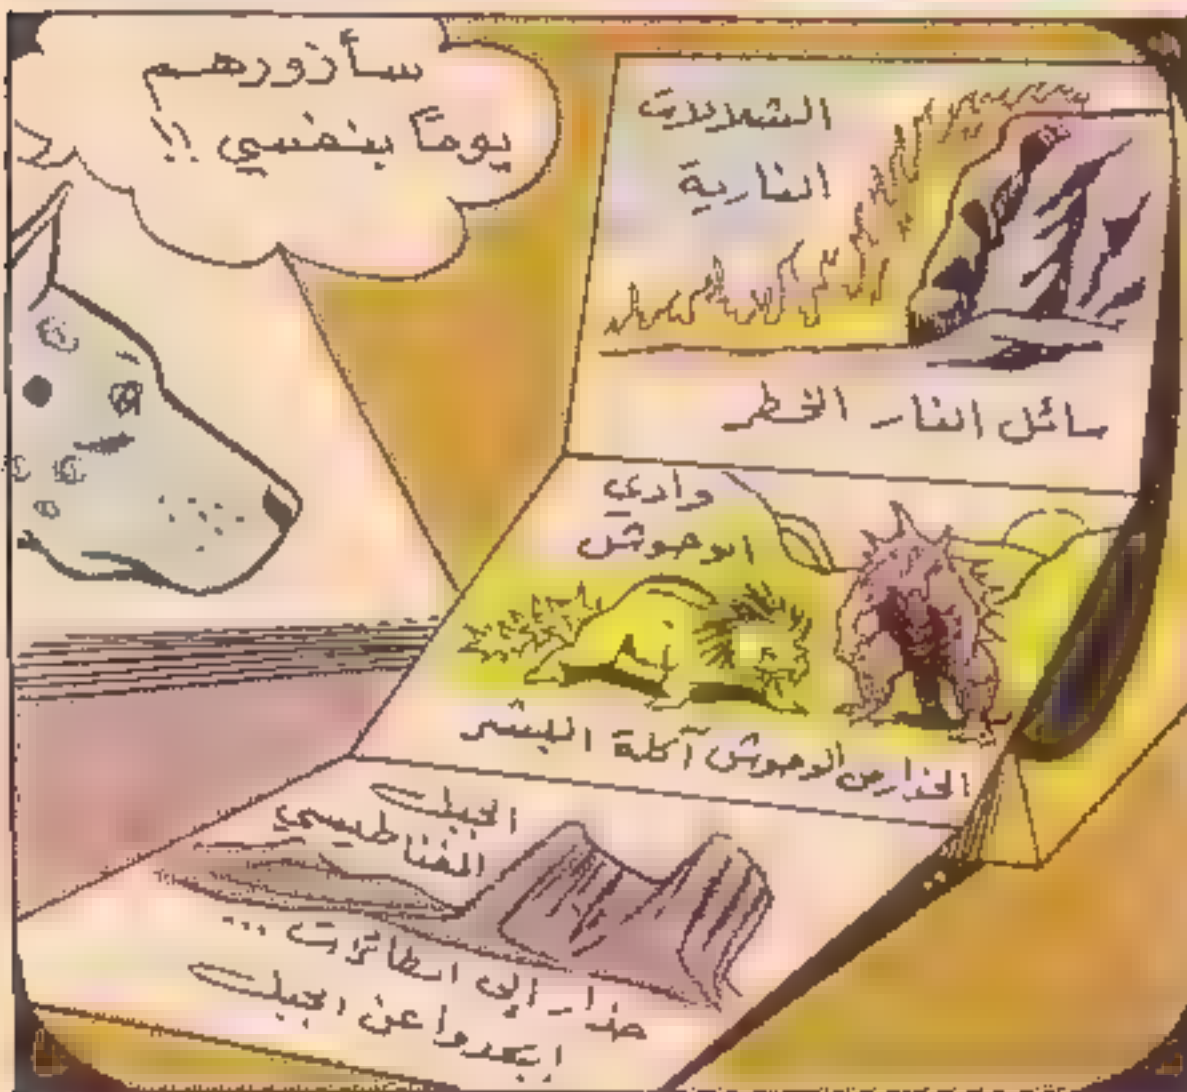 سأزورهم
يوماً بنفسي !!
الشلالات
النارية
سائل النار الخطر
وادي
الوحوش
الحذار من الوحوش آكلة البشر
الجبل
المغناطيسي
حذار إلى الطائرات ...
ابتعدوا عن الجبل